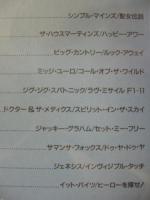 シンプル・マインズ/聖女伝説
ザ・ハウスマーティンズ/ハッピー・アワー
ビッグ・カントリー/ルック・アウェイ
ミッジ・ユーロ/コール・オブ・ザ・ワイルド
ジグ・ジグ・スパトニック/ラヴ・ミサイル F1-11
ドクター&ザ・メディクス/スピリット・イン・ザ・スカイ
ジャッキー・グラハム/セット・ミー・フリー
サマンサ・フォックス/ドゥ・ヤ・ドゥ・ヤ
ジェネシス/インヴィジブル・タッチ
イット・バイツ/ヒーローを探せ!